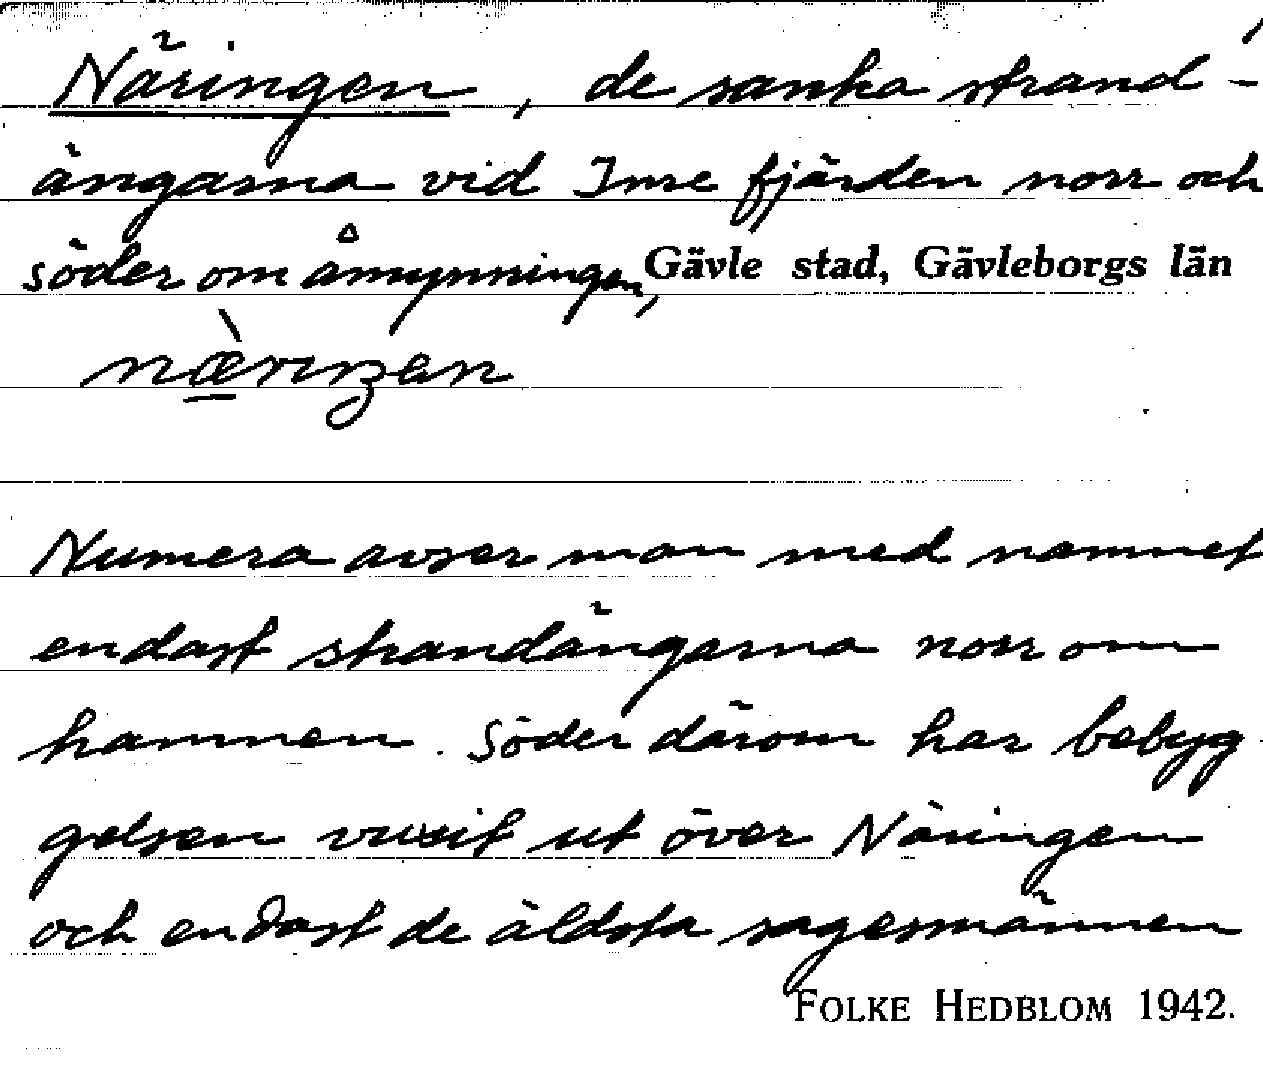 Näringen, de sanka strand-
ängarna vid Inre fjärden norr och
söder om åmynningen, Gävle stad, Gävleborgs län
Numera avser man med namnet
endast strandängarna norr om
hamnen. Söder därom har bebyg-
gelsen vuxit ut över Näringen
och endast de äldsta sagesmännen
FOLKE HEDBLOM 1942.